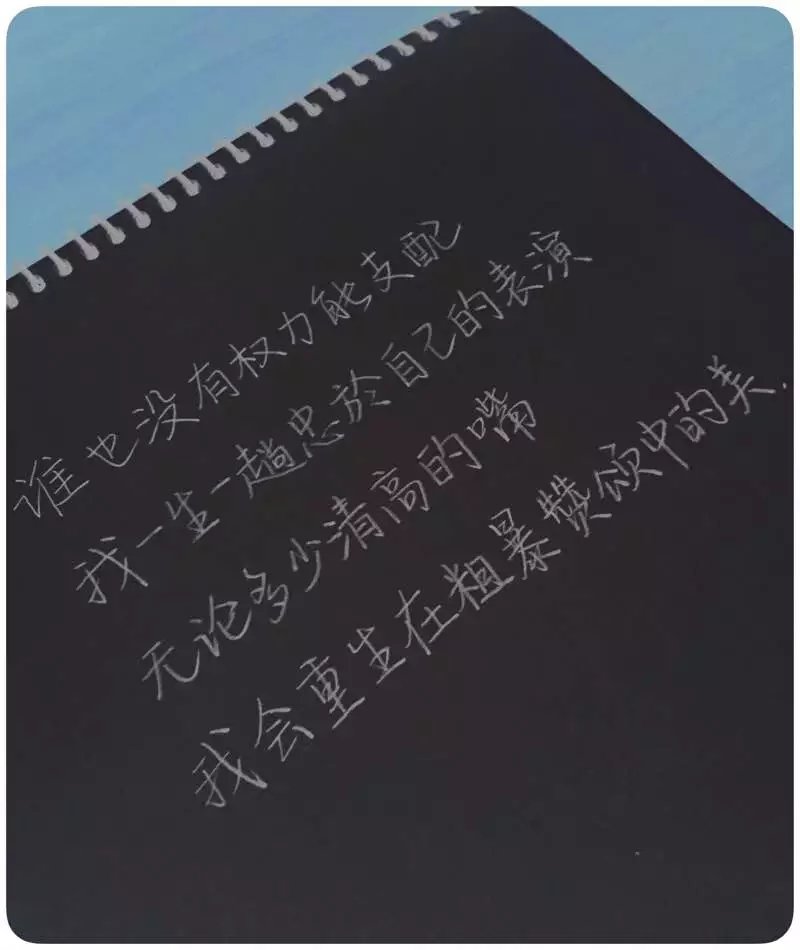 谁也没有权力能支配
我一生一趟忠於自己的表演
无论多少清高的嘴
我会重生在粗暴赞颂中的美.